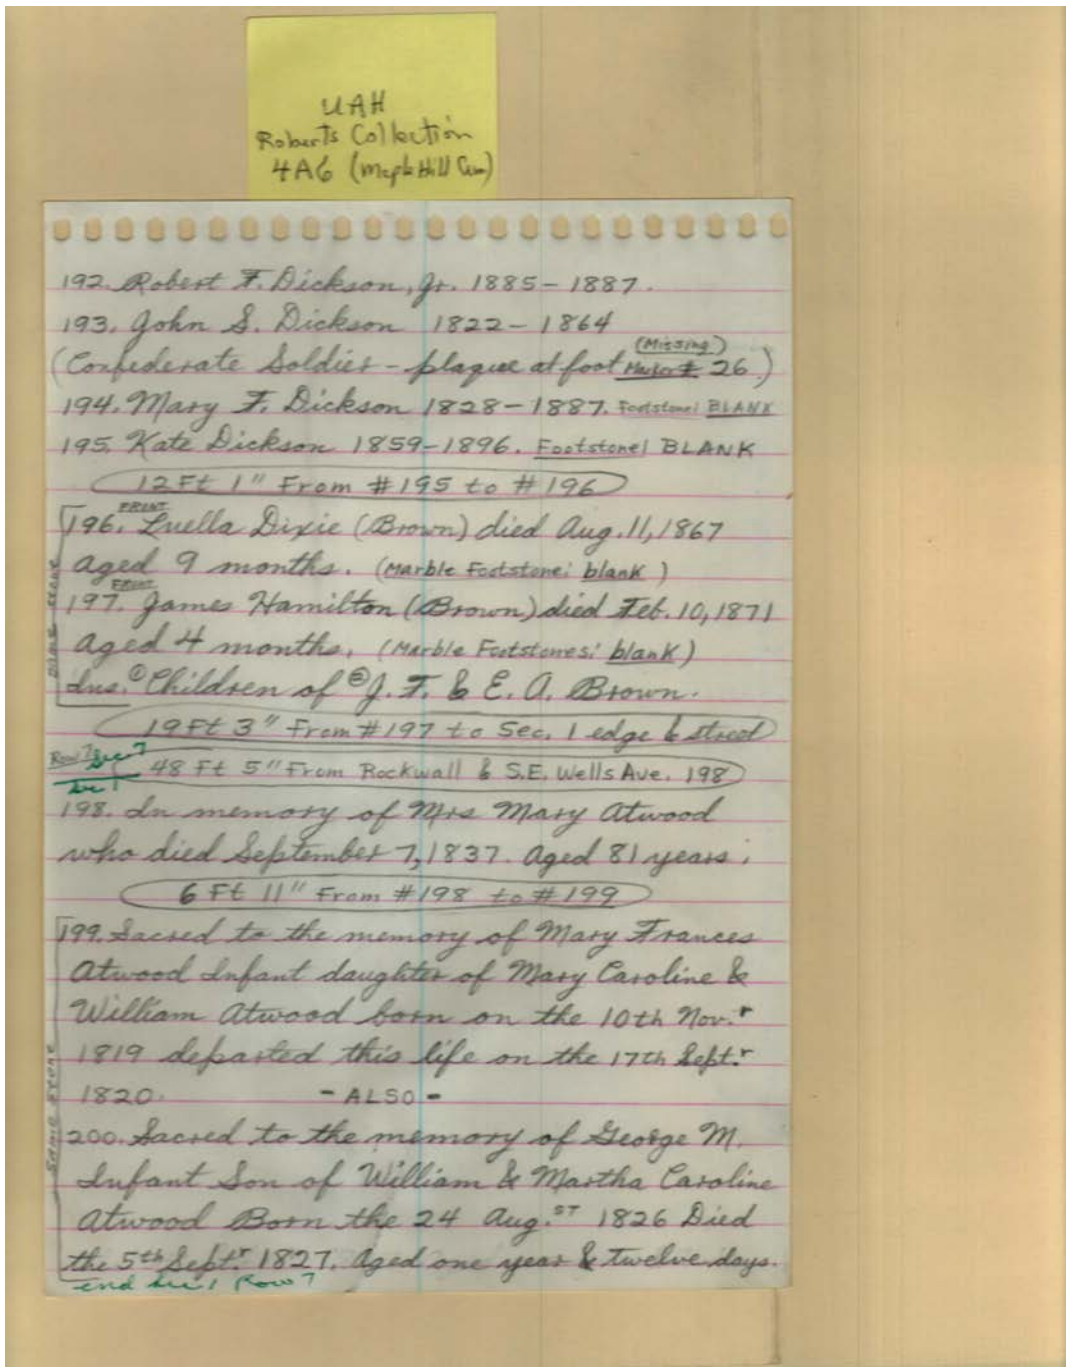 UAH
Roberts Collection
4A6 (Maple Hill Cem)
192. Robert F. Dickson, Jr. 1885-1887.
193. John S. Dickson 1822-1864
(Missing)
(Confederate Soldier - plaque at foot Marker # 26.)
194. Mary F. Dickson 1828-1887. Footstone: BLANK
195. Kate Dickson 1859-1896. Footstone: BLANK
12 Ft 1" From #195 to #196
FRONT
196. Luella Dixie (Brown) died Aug. 11, 1867
aged 9 months. (Marble Footstone: blank)
FRONT
197. James Hamilton (Brown) died Feb. 10, 1871
aged 4 months. (Marble Footstones: blank)
Ins. Children of J. F. & E. A. Brown.
SAME STONE
19 Ft 3" From #197 to Sec. 1 edge & street
Row 7 Sec 7
Sec 1
48 Ft 5" From Rockwall & S.E. Wells Ave. 198
198. In memory of Mrs Mary Atwood
who died September 7, 1837. Aged 81 years.
6 Ft 11" From #198 to #199
199. Sacred to the memory of Mary Frances
Atwood Infant daughter of Mary Caroline &
William Atwood born on the 10th Nov.r
1819 departed this life on the 17th Sept.r
1820. - ALSO -
SAME STONE
200. Sacred to the memory of George M.
Infant Son of William & Martha Caroline
Atwood Born the 24 Aug.ST 1826 Died
the 5th Sept.r 1827. Aged one year & twelve days.
end Sec 1 Row 7